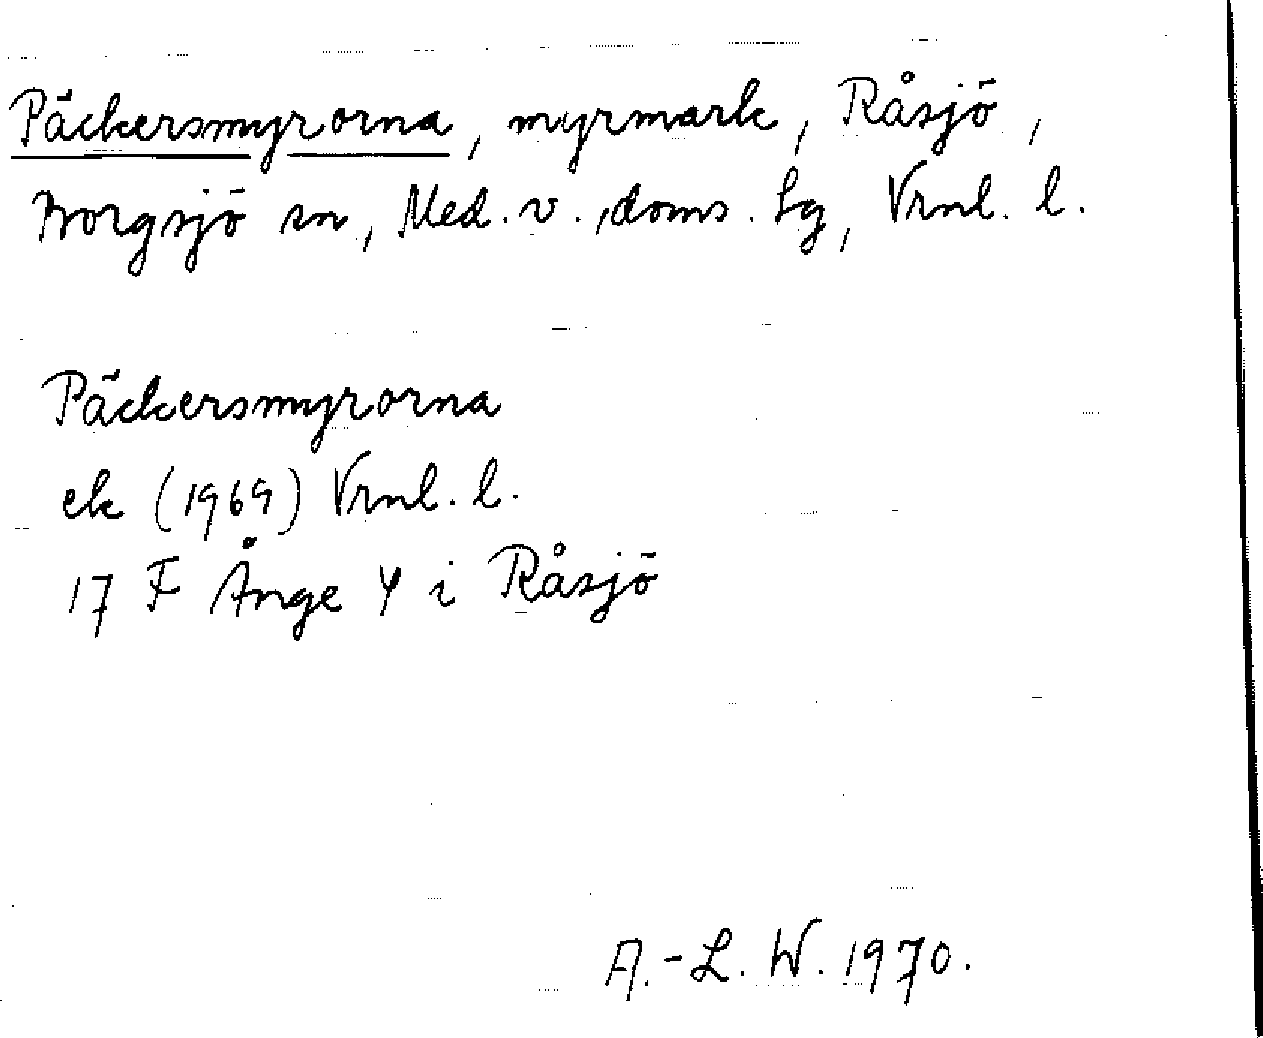 Päckersmyrorna, myrmark, Råsjö,
Borgsjö sn, Med. v., doms. sg, Vrnl. l.
Päckersmyrorna
ek (1969) Vrnl. l.
17 F Ånge Y i Råsjö
A.-L. W. 1970.